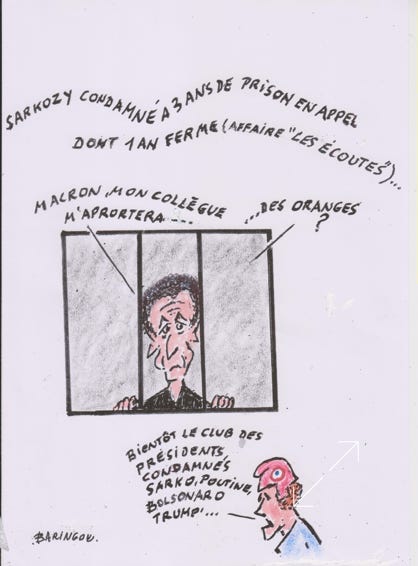 SARKOZY CONDAMNÉ À 3 ANS DE PRISON EN APPEL
DONT 1 AN FERME (AFFAIRE "LES ÉCOUTES")...
MACRON, MON COLLÈGUE
M'APRORTERA ....
...DES ORANGES
?
BIENTÔT LE CLUB DES
PRÉSIDENTS
CONDAMNÉS
SARKO, POUTINE,
BOLSONARO
TRUMP...
BARINGOU.